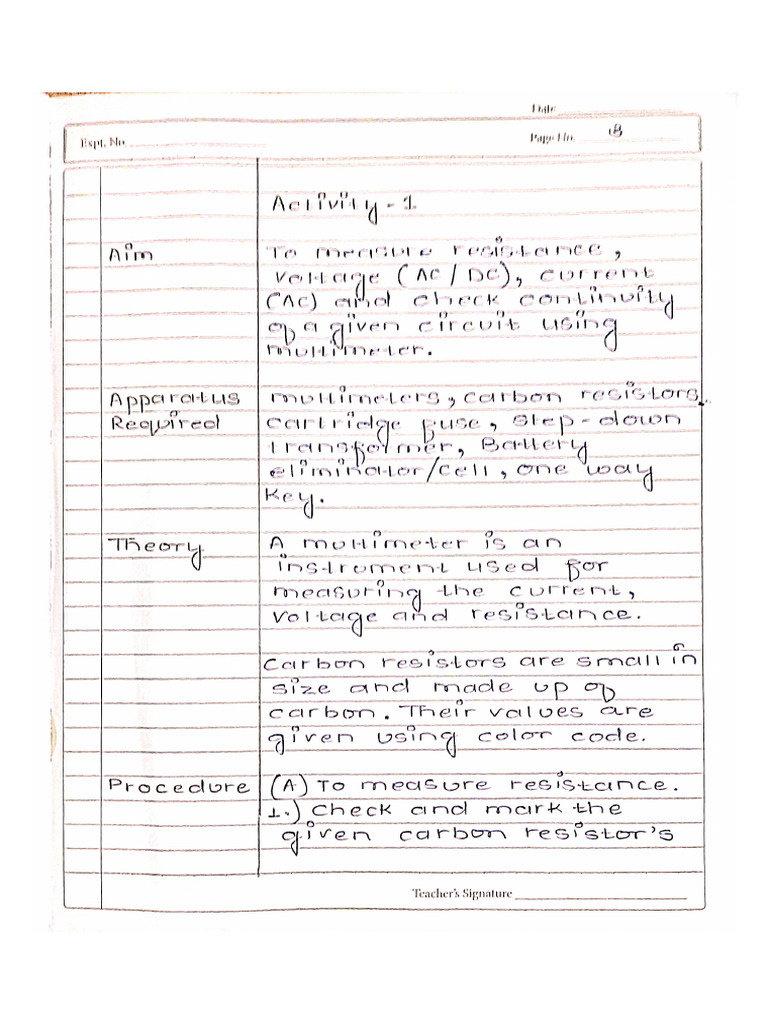 Date
Expt. No.
Page No. 18
Activity - 1
Aim
To measure resistance,
voltage (AC / DC), current
(AC) and check continuity
of a given circuit using
multimeter.
Apparatus Required
multimeters, carbon resistors,
cartridge fuse, step-down
transformer, Battery
eliminator/cell, one way
key.
Theory
A multimeter is an
instrument used for
measuring the current,
voltage and resistance.
Carbon resistors are small in
size and made up of
carbon. Their values are
given using color code.
Procedure
(A) To measure resistance.
1.) Check and mark the
given carbon resistor's
Teacher's Signature